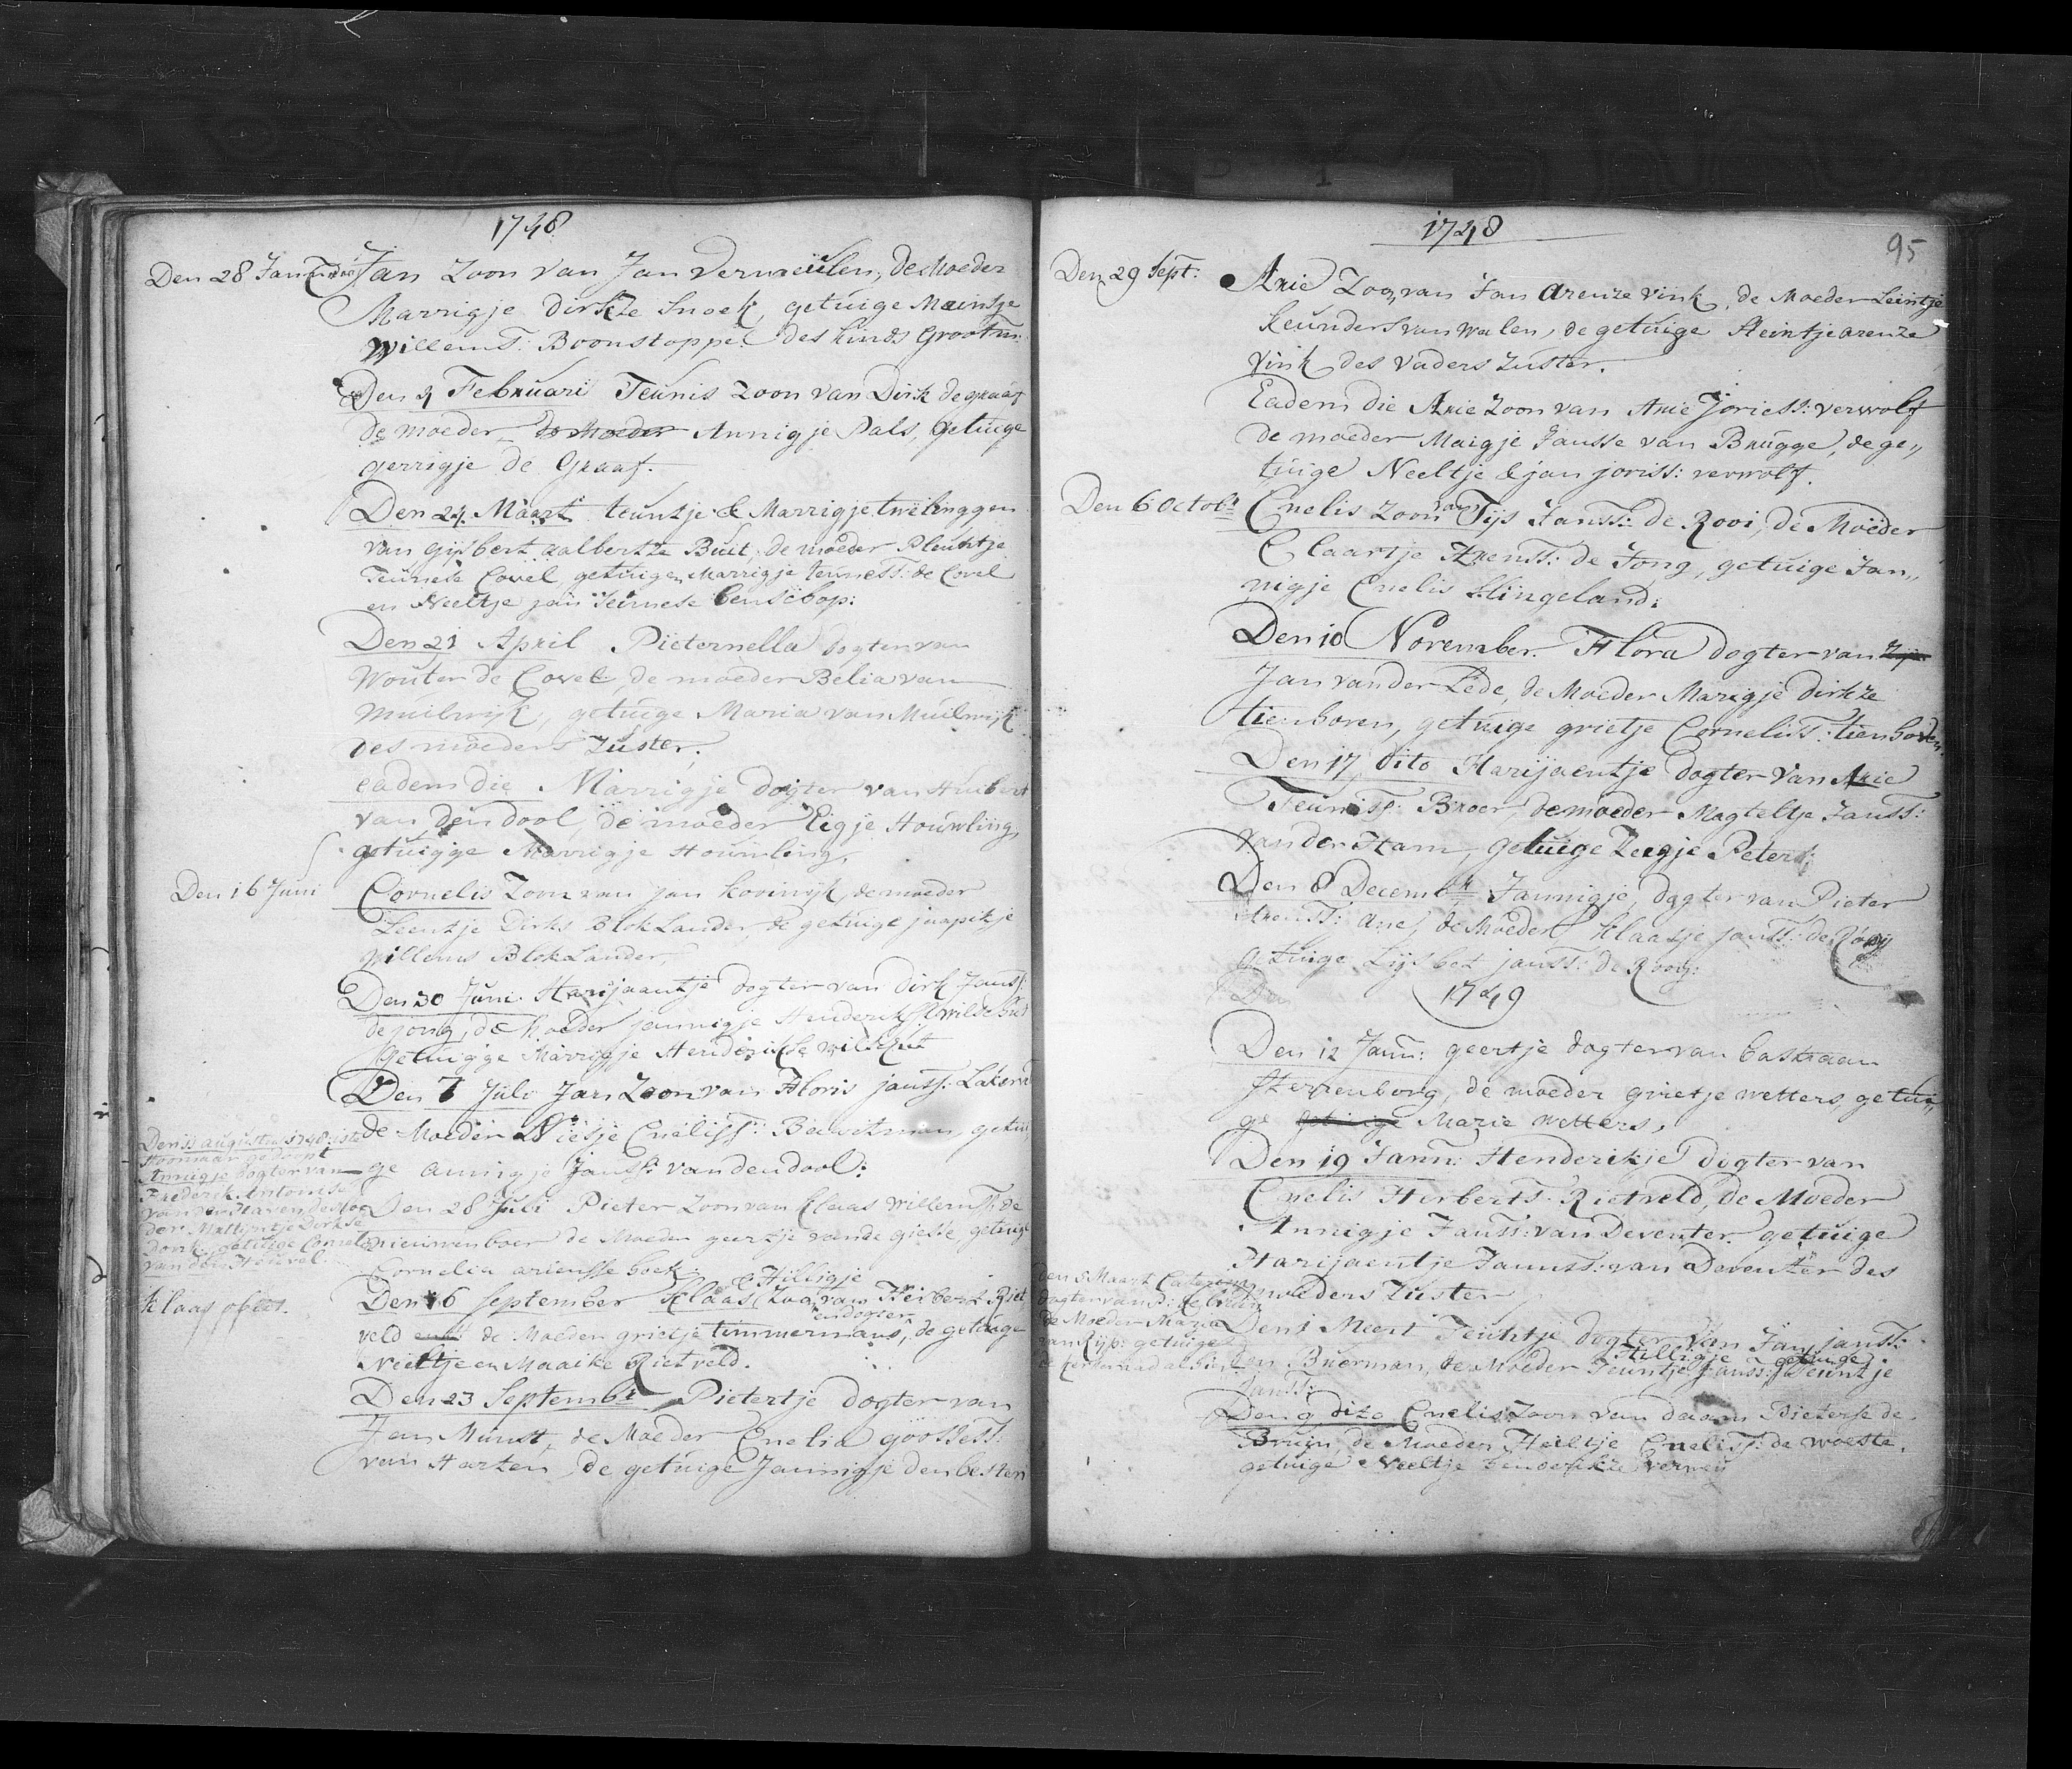 1748
Den 28 Januari Jan Zoon van Jan Vermeulen, de Moeder
Marrigje dirkze Snoek, getuige Maintje
Willems: Boonstoppel des kinds Grootm:
Den 4 Februari Teunis Zoon van Dirk de graaf
de moeder de Moeder Annigje Pals, getuige
gerrigje de Graaf.
Den 24. Maart teuntje & Marrigje twëlinggen
van gijsbert aalbertze Buit, de moeder Pleuntje
Teunese Covel, getuigen Marrigje teuness: de Covel
en Neeltje jan Teunese benschop:
Den 21 April Pieternella dogter van
Wouter de Covel, de moeder Belia van
Muilwijk, getuige Maria van Muilwijk
des moeders Zuster.
eadem die Marrigje dogter van Huibert
van den dool, de moeder Eigje Houwling,
getuigje Marrigje Houwling,
Den 16 Juni Cornelis Zoon van Jan kooiwijk, de moeder
Leentje Dirks BlokLander, de getuige jaapikje
Willems BlokLander,
Den 30 Juni Harijaantje dogter van Dirk Janss:
de jong, de Moeder jannigje Henderikse wilschut
getuigje Marrigje Henderikse wilschut
Den 7 Juli Jan Zoon van Floris janss:
de Moeder Niesje Cnëliss:
ge annigje Janss: van den dool:
Den augustus 1748 is te
Hoornaar gedoopt
Annigje dogter van
Frederik Antonisse
van der Haven de Moe
der Mattijntje Dirkse
Donk, getuige Cornel
van den Heuvel.
Den 28 Juli Pieter Zoon van Klaas Willemss: de
nieuwenboer de Moeder geertje vande giesse, getuige
Cornelia ariensse boek
Klaas obiit.
& Hilligje
Den 16 September Klaas Zoon van Herbert Riet
en dogter
veld de Moeder grietje timmermans, de getuige
Neeltje en Maaike Rietveld.
Den 23 Septembr Pietertje dogter van
Jan Munst, de Moeder Cnelia goossess:
van Harten, de getuige Jannigje den besten
1748
95
Den 29 Sept: Arie Zoon van Jan Arenze vink, de Moeder Leintje
keunders van Walen, de getuige Heintje arenze
vink des vaders Zuster.
Eadem die Arie Zoon van Arie Joriess: verwolf
de moeder Maigje Jansse van Brugge, de ge,,
tuige Neeltje & jan joriss: verwolf.
Den 6 Octobr Cnelis Zoon van Tijs Janss: de Rooi, de Moeder
Claartje Arenss: de Jong, getuige Jan,,
nigje Cnelis Slingeland:
Den 10 November. Flora dogter van
Jan van der Lede, de Moeder Marigje dirkze
tienhoven, getuige grietje Corneliss: tienhoven.
Den 17 dito Harijaentje dogter van Arie
Teuniss: Broer, de moeder Magteltje Janss:
van der Ham, getuige Zeegje Peters:
Den 8 Decembr Jannigje, dogter van Pieter
Arenss: ane, de Moeder Klaasje janss: de Rooij
getuige Lijsbet janss: de Rooij:
Den 1749
Den 12 Jann: geertje dogter van bastiaan
sterrenborg, de moeder grietje wetters, getui,,
ge getuige Marie wetters,
Den 19 Jann: Henderikje dogter van
Cnelis Herberts: Rietveld, de Moeder
Annigje Janss: van Deventer getuige
Harijaentje Jannss: van Deventer des
moeders Zuster
den 5 Maart Caterina
dogter van
de Moeder Maria
van Rijs: getuige
Den 1 Meert Teuntje dogter van Jan janss:
den Buerman, de Moeder Teuntje Janss: getuige Hilligje Teuntje
Janss:
Den 9 dito Cnelis Zoon van daam Pieterse de
Bruijn, de Moeder Heiltje Cneliss: de woeste,
getuige Neeltje henderikze verweij